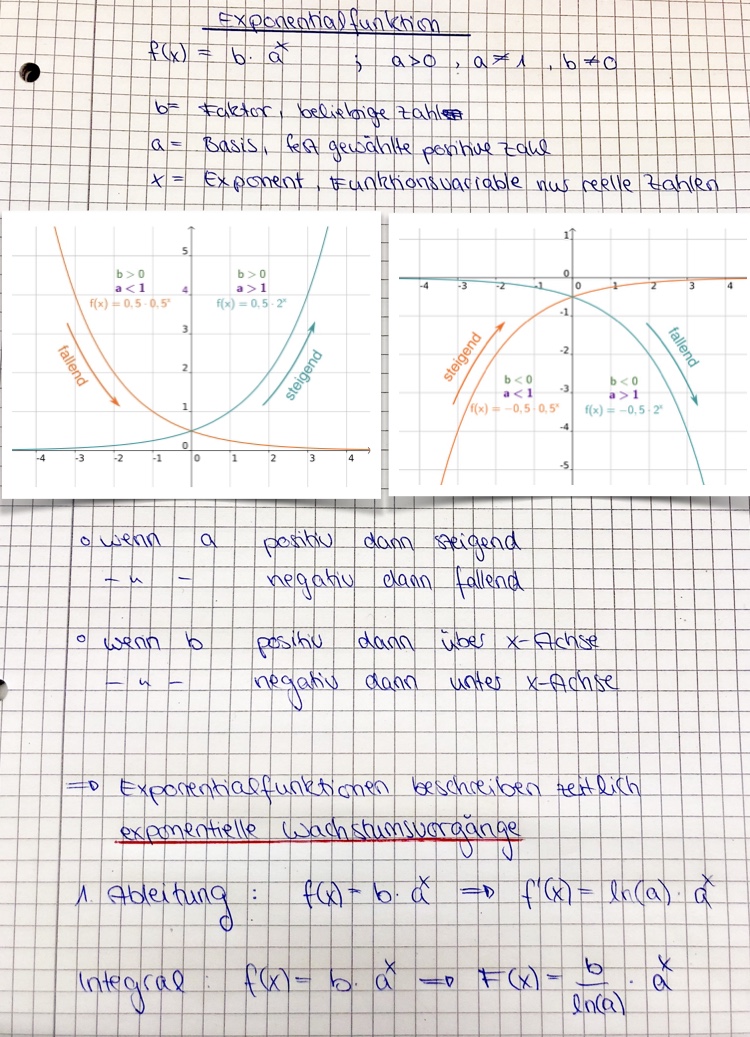 Exponentialfunktion
f(x) = b · aˣ ; a>0 , a≠1 , b≠0
b= Faktor, beliebige Zahl
a = Basis, fest gewählte positive Zahl
x = Exponent, Funktionsvariable nur reelle Zahlen
5
4
3
2
1
0
-4 -3 -2 -1 0 1 2 3 4
b > 0
a < 1
f(x) = 0,5 · 0,5ˣ
b > 0
a > 1
f(x) = 0,5 · 2ˣ
fallend
steigend
1
0
-4 -3 -2 -1 0 1 2 3 4
-1
-2
-3
-4
-5
steigend
fallend
b < 0
a < 1
f(x) = −0,5 · 0,5ˣ
b < 0
a > 1
f(x) = −0,5 · 2ˣ
o wenn a positiv dann steigend
– " – negativ dann fallend
o wenn b positiv dann über x-Achse
– " – negativ dann unter x-Achse
⇒ Exponentialfunktionen beschreiben zeitlich
exponentielle Wachstumsvorgänge
1. Ableitung : f(x) = b · aˣ ⇒ f'(x) = ln(a) · aˣ
Integral : f(x) = b · aˣ ⇒ F(x) = b/ln(a) · aˣ